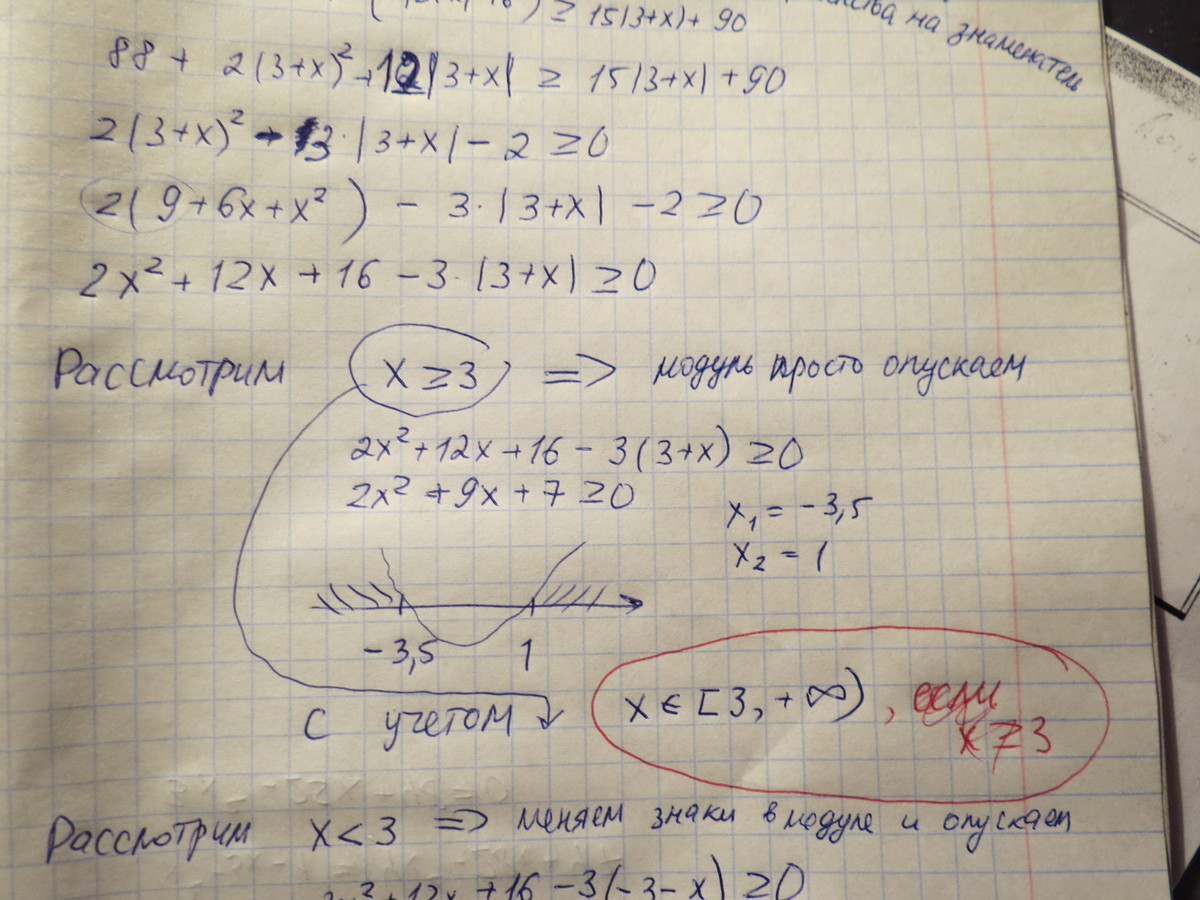 ≥ 15|3+x|+ 90
на знаменатель
88 + 2(3+x)² + 12|3+x| ≥ 15|3+x| + 90
2(3+x)² - 3·|3+x| - 2 ≥ 0
2(9+6x+x²) - 3·|3+x| - 2 ≥ 0
2x² + 12x + 16 - 3·|3+x| ≥ 0
Рассмотрим x ≥ 3 => модуль просто опускаем
2x² + 12x + 16 - 3(3+x) ≥ 0
2x² + 9x + 7 ≥ 0
x₁ = -3,5
x₂ = 1
-3,5 1
С учетом x ∈ [3, +∞), если
x ≥ 3
Рассмотрим x < 3 => меняем знаки в модуле и опускаем
2x² + 12x + 16 - 3(-3-x) ≥ 0